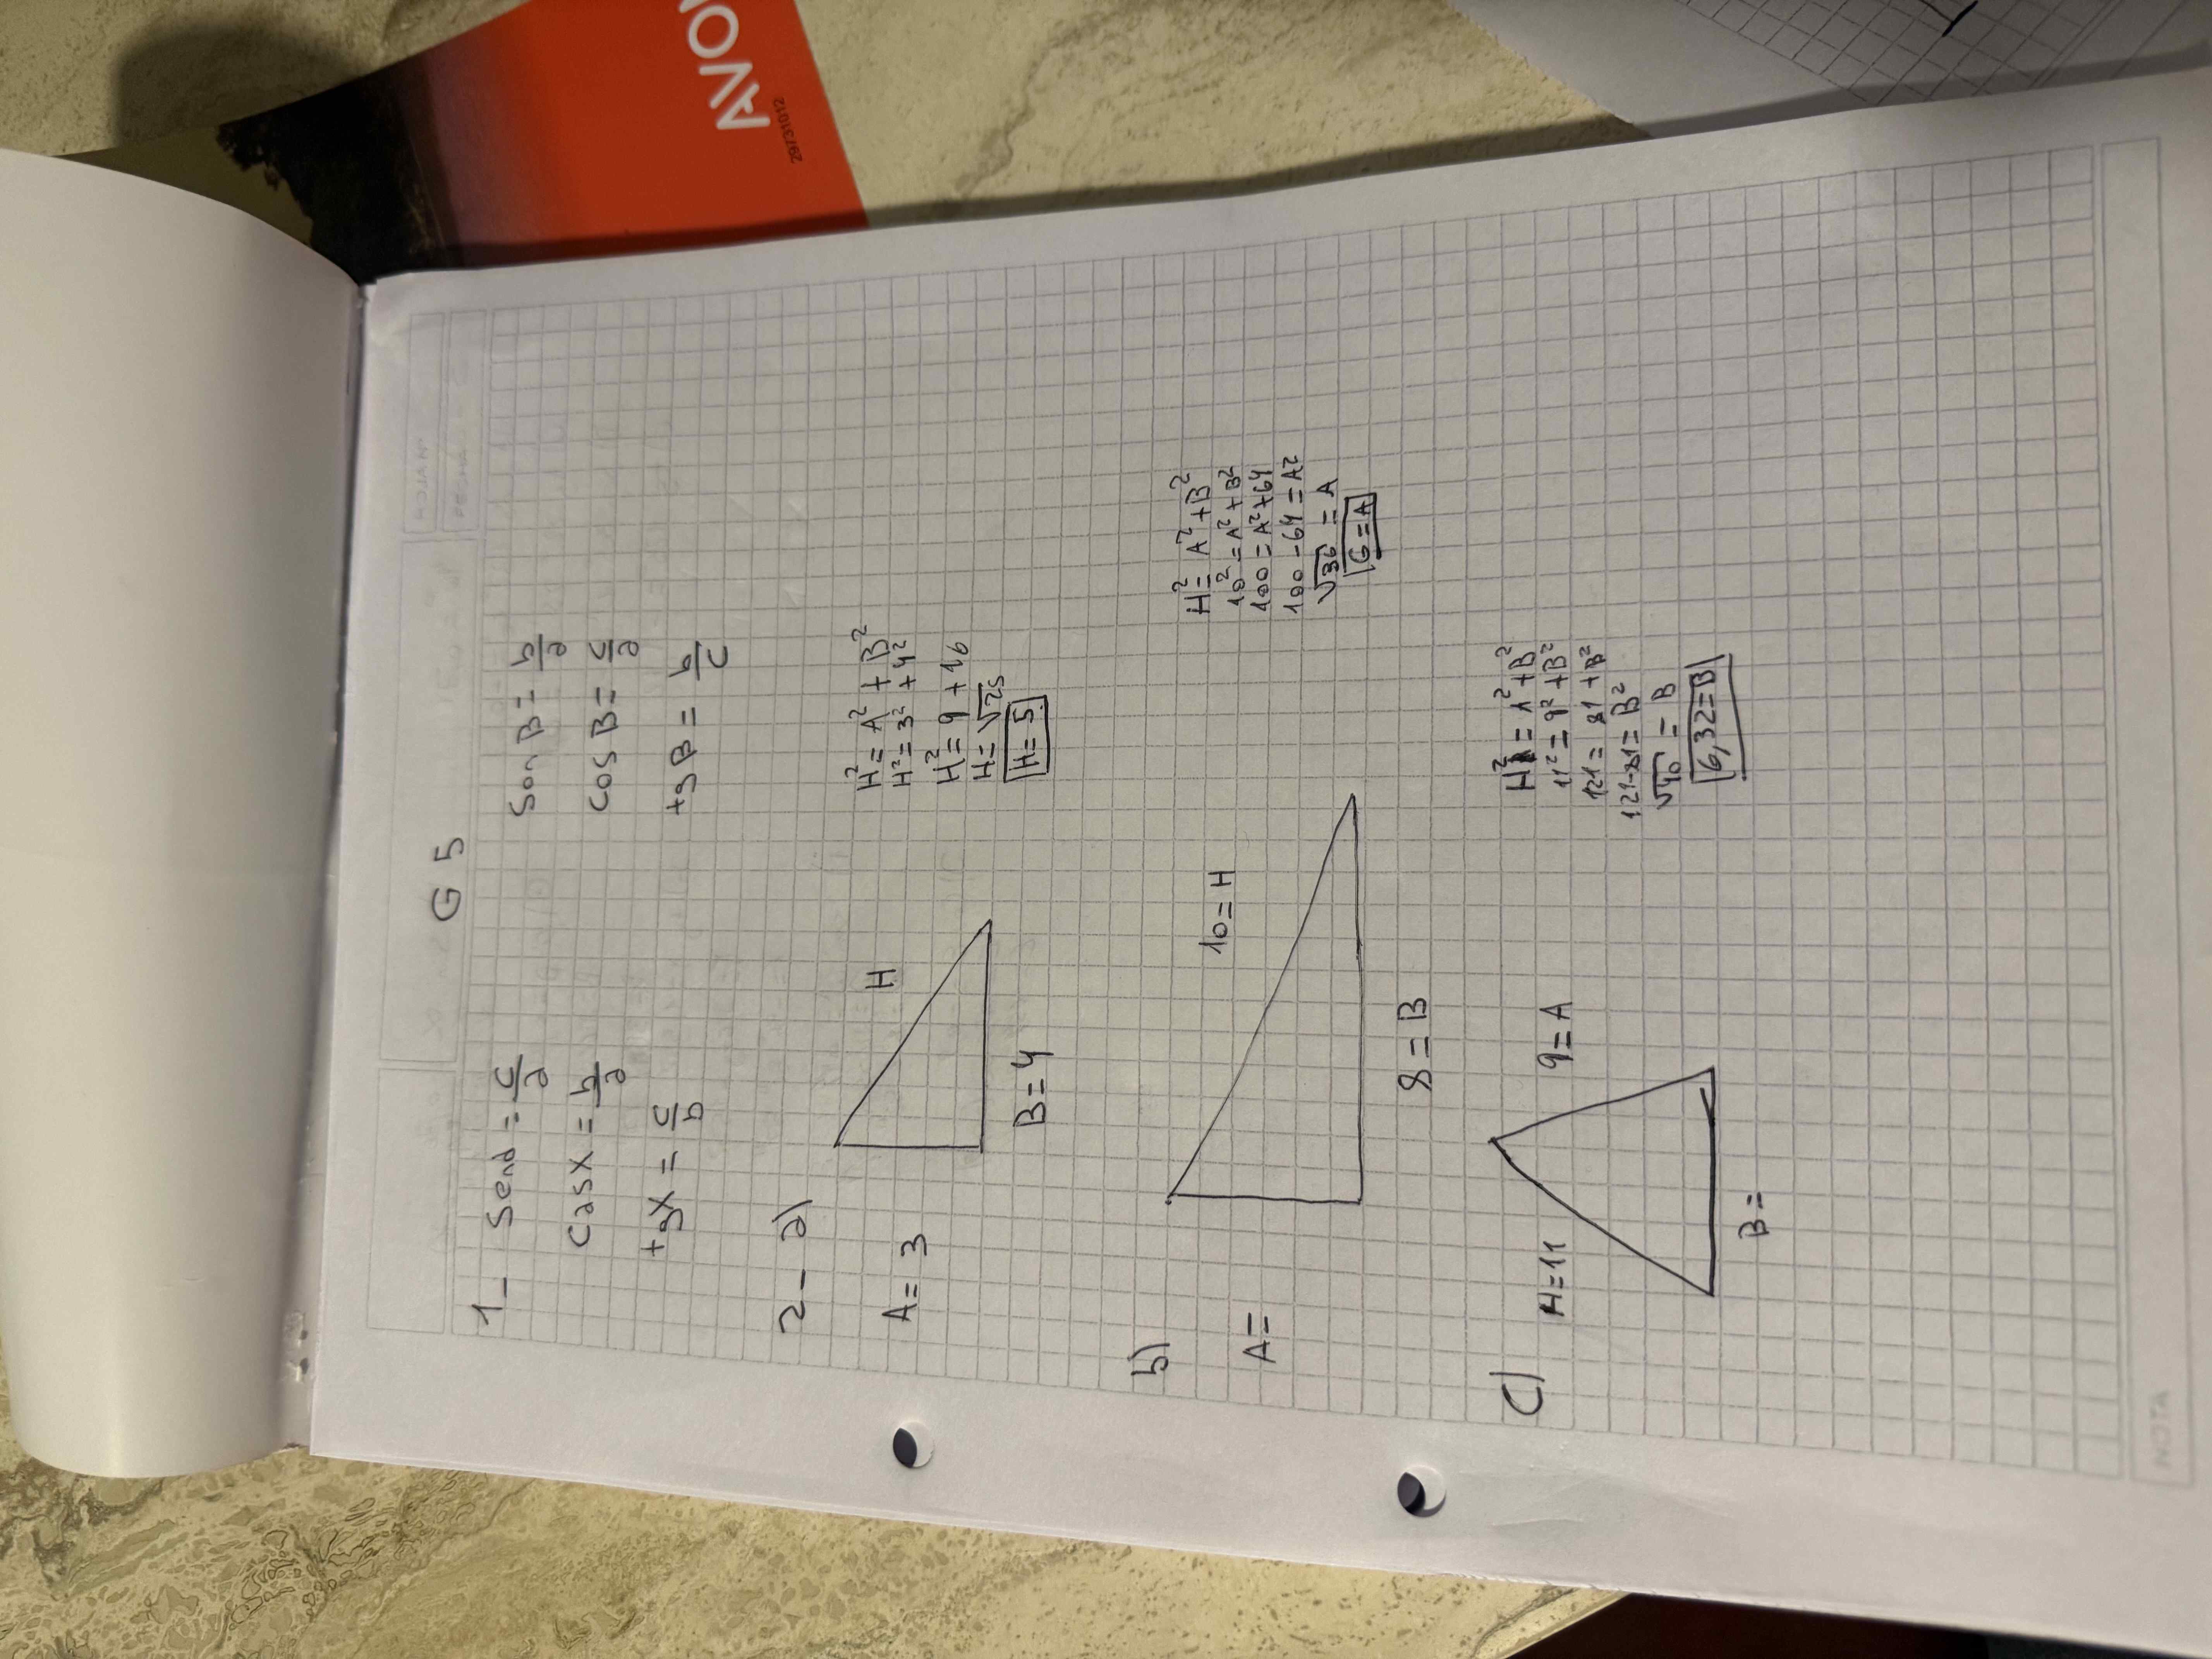 AVO
29731012
G 5
1_ Send = c/a
Cosx = b/a
tgx = c/b
Sen B = b/a
Cos B = c/a
tg B = b/c
2- a)
A = 3
H
B = 4
H² = A² + B²
H² = 3² + 4²
H² = 9 + 16
H = √25
H = 5
b)
A =
10 = H
8 = B
H² = A² + B²
10² = A² + B²
100 = A² + 64
100 - 64 = A²
√36 = A
6 = A
c)
H = 11
9 = A
B =
H² = A² + B²
11² = 9² + B²
121 = 81 + B²
121-81 = B²
√40 = B
6,32 = B
NOTA